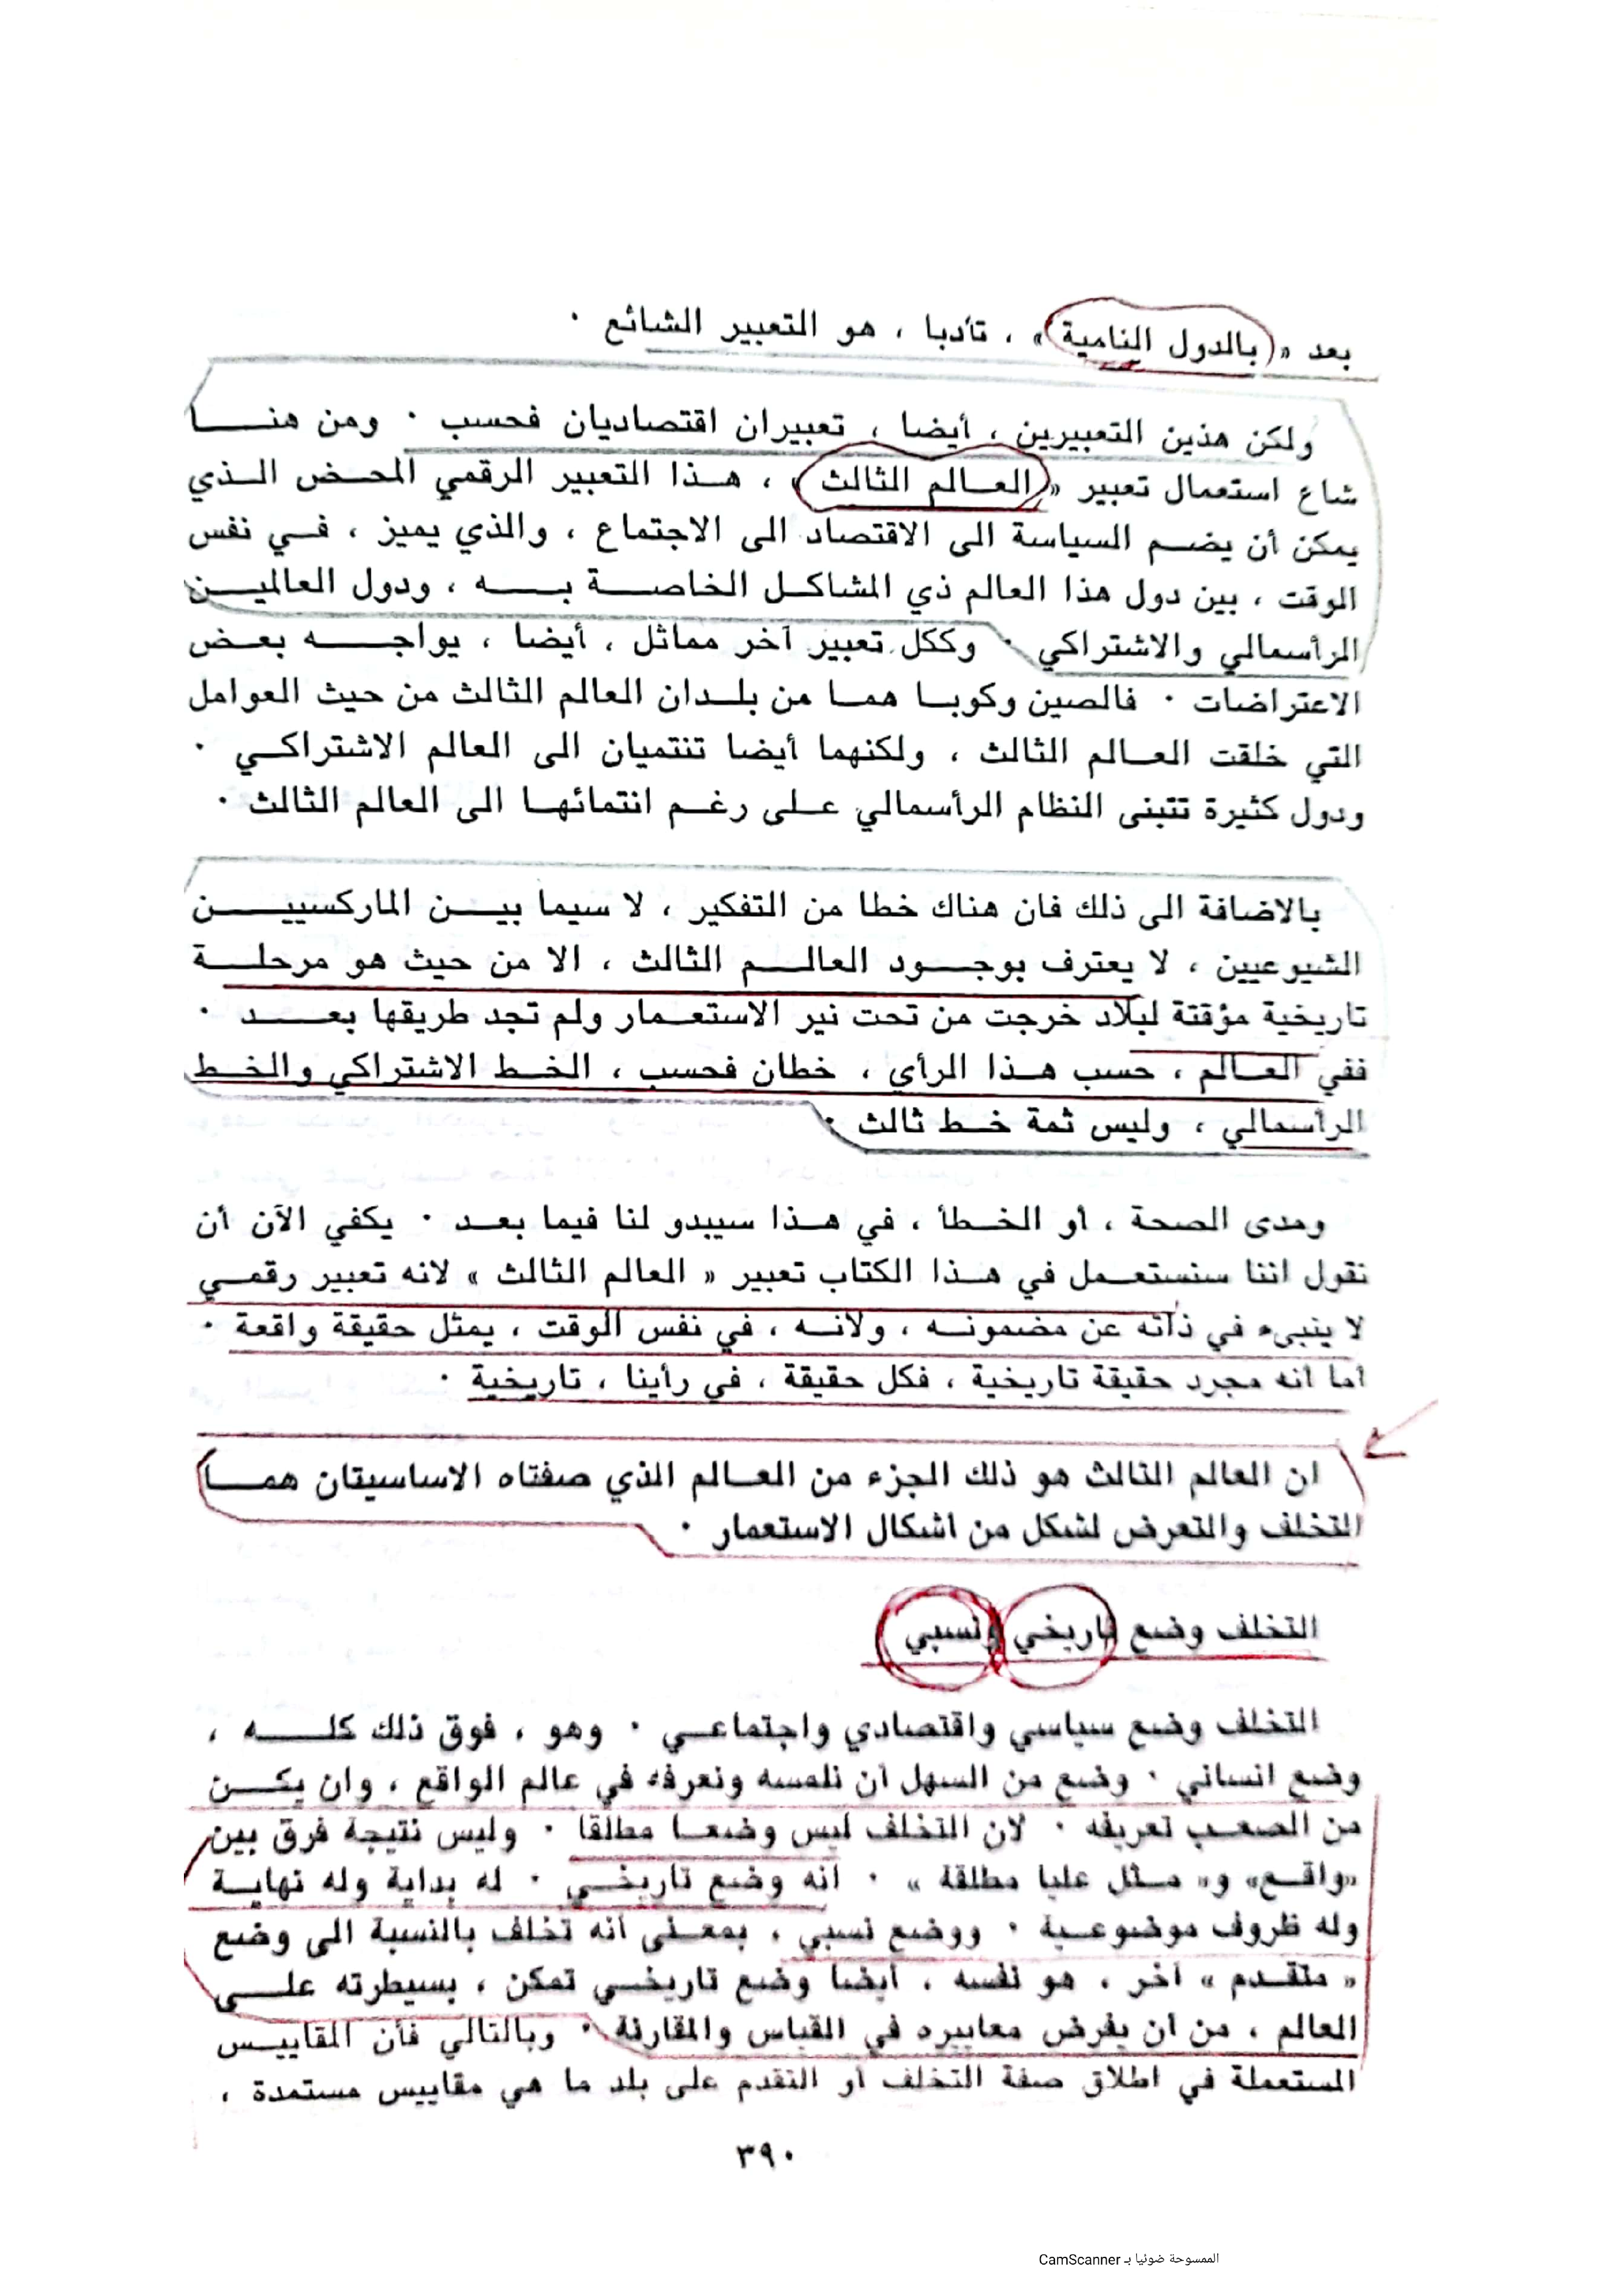 بعد « بالدول النامية » ، تأدبا ، هو التعبير الشائع ٠
ولكن هذين التعبيرين ، أيضا ، تعبيران اقتصاديان فحسب ٠ ومن هنا
شاع استعمال تعبير « العالم الثالث » ، هذا التعبير الرقمي المحض الذي
يمكن أن يضم السياسة الى الاقتصاد الى الاجتماع ، والذي يميز ، في نفس
الوقت ، بين دول هذا العالم ذي المشاكل الخاصة به ، ودول العالمين
الرأسمالي والاشتراكي ٠ وككل تعبير آخر مماثل ، أيضا ، يواجه بعض
الاعتراضات ٠ فالصين وكوبا هما من بلدان العالم الثالث من حيث العوامل
التي خلقت العالم الثالث ، ولكنهما أيضا تنتميان الى العالم الاشتراكي ٠
ودول كثيرة تتبنى النظام الرأسمالي على رغم انتمائها الى العالم الثالث ٠
بالاضافة الى ذلك فان هناك خطا من التفكير ، لا سيما بين الماركسيين
الشيوعيين ، لا يعترف بوجود العالم الثالث ، الا من حيث هو مرحلة
تاريخية مؤقتة لبلاد خرجت من تحت نير الاستعمار ولم تجد طريقها بعد ٠
ففي العالم ، حسب هذا الرأي ، خطان فحسب ، الخط الاشتراكي والخط
الرأسمالي ، وليس ثمة خط ثالث ٠
ومدى الصحة ، أو الخطأ ، في هذا سيبدو لنا فيما بعد ٠ يكفي الآن أن
نقول اننا سنستعمل في هذا الكتاب تعبير « العالم الثالث » لانه تعبير رقمي
لا ينبىء في ذاته عن مضمونه ، ولانه ، في نفس الوقت ، يمثل حقيقة واقعة ٠
أما أنه مجرد حقيقة تاريخية ، فكل حقيقة ، في رأينا ، تاريخية ٠
ان العالم الثالث هو ذلك الجزء من العالم الذي صفتاه الاساسيتان هما
التخلف والتعرض لشكل من اشكال الاستعمار ٠
التخلف وضع تاريخي ونسبي
التخلف وضع سياسي واقتصادي واجتماعي ٠ وهو ، فوق ذلك كله ،
وضع انساني ٠ وضع من السهل أن نلمسه ونعرفه في عالم الواقع ، وان يكن
من الصعب تعريفه ٠ لان التخلف ليس وضعا مطلقا ٠ وليس نتيجة فرق بين
«واقع» و« مثل عليا مطلقة » ٠ انه وضع تاريخي ٠ له بداية وله نهاية
وله ظروف موضوعية ٠ ووضع نسبي ، بمعنى أنه تخلف بالنسبة الى وضع
« متقدم » آخر ، هو نفسه ، أيضا وضع تاريخي تمكن ، بسيطرته على
العالم ، من أن يفرض معاييره في القياس والمقارنة ٠ وبالتالي فأن المقاييس
المستعملة في اطلاق صفة التخلف أو التقدم على بلد ما هي مقاييس مستمدة ،
٣٩٠
الممسوحة ضوئيا بـ CamScanner